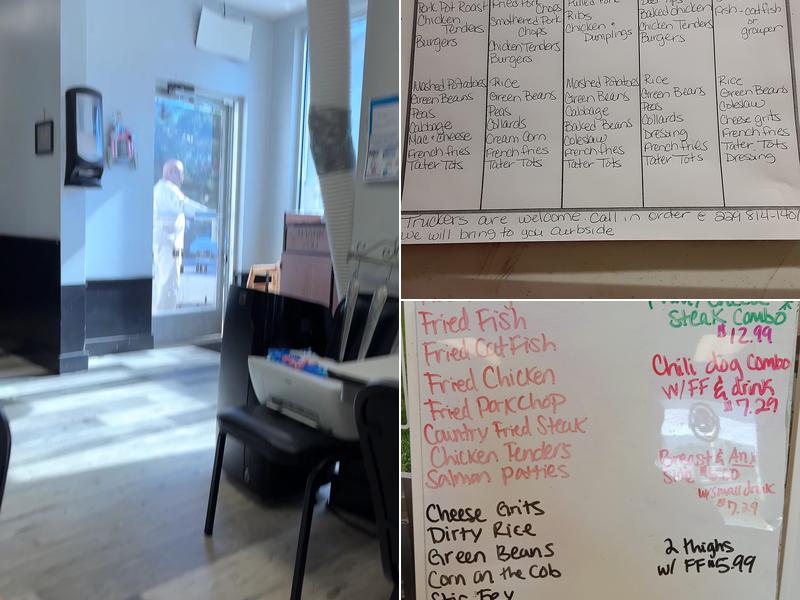 Pork Pot Roast
Chicken
Tenders
Burgers
Fried Pork Chops
Smothered Pork
Chops
Chicken Tenders
Burgers
Pulled Pork
Ribs
Chicken +
Dumplings
Baked Chicken
Chicken Tenders
Burgers
Fish - catfish
or
grouper
Mashed Potatoes
Green Beans
Peas
Cabbage
Mac + Cheese
French fries
Tater Tots
Rice
Green Beans
Peas
Collards
Cream Corn
French fries
Tater Tots
Mashed Potatoes
Green Beans
Cabbage
Baked Beans
Coleslaw
French fries
Tater Tots
Rice
Green Beans
Peas
Collards
Dressing
French fries
Tater Tots
Rice
Green Beans
Coleslaw
Cheese grits
French fries
Tater Tots
Dressing
Truckers are welcome. Call in order @ 229 814-1401
we will bring to you curbside
Fried Fish
Fried CatFish
Fried Chicken
Fried PorkChop
Country Fried Steak
Chicken Tenders
Salmon Patties
Cheese Grits
Dirty Rice
Green Beans
Corn on the Cob
Steak Combo
$12.99
Chili dog Combo
w/FF & drink
$7.29
Breast & Any
Side
w/small drink
$7.29
2 thighs
w/ FF $5.99